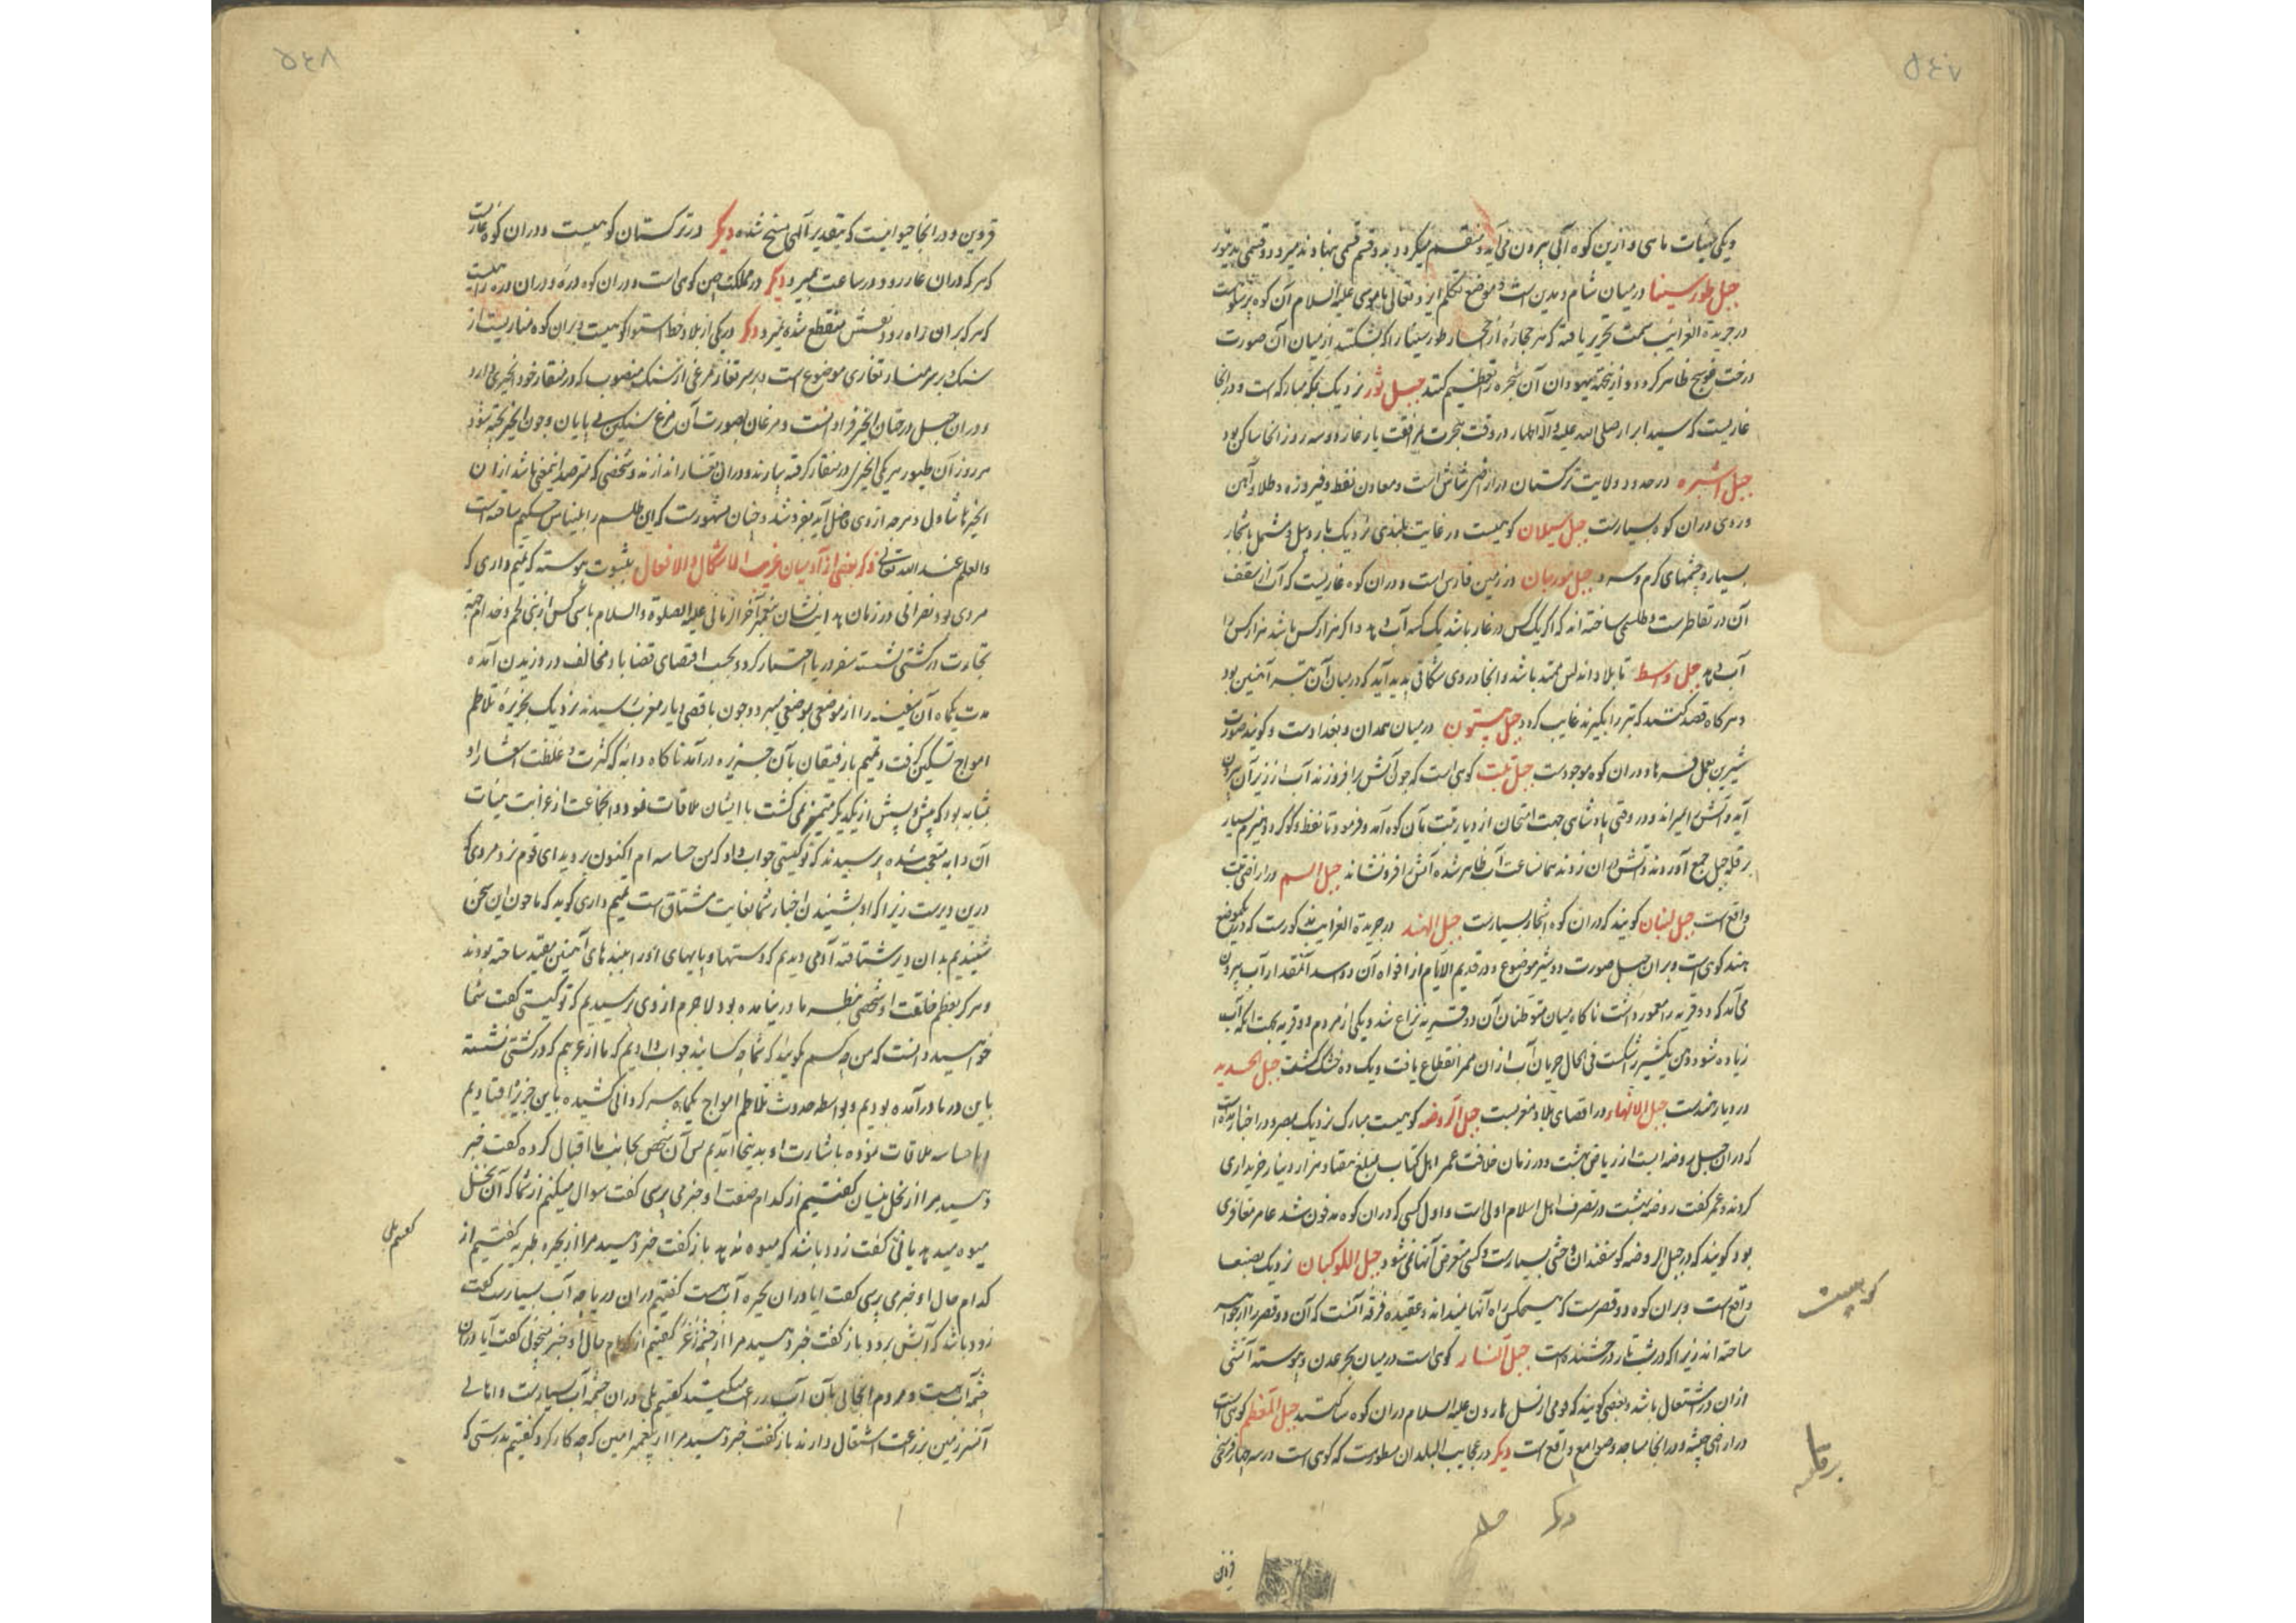 ۵۴۷
ویکی بهیات ماهی و ازین کوه آبی بیرون می‌آید و منقسم میکردد بدو قسم قسمی بنهاوند میرود و قسمی بدینور
جبل طور سینا در میان شام و مدین است و موضع تکلم ایزد تعالی با موسی علیه السلام آن کوه
در جریدة الغرایب سمت تحریر یافته که هر حجاره از احجار طور سینا را که بشکنند از میان آن صورت
درخت عوسج ظاهر کردد و ازینجهة یهودان آن شجره را تعظیم کنند جبل ثور نزدیک بمکه مبارکه است و در انجا
غاریست که سید ابرار صلی الله علیه و آله الاطهار در وقت هجرت بمرافقت یار غار دو سه روز انجا ساکن بود
جبل اشبره در حدود ولایت ترکستان در ارض شاش است و معادن نفط و فیروزه و طلا و آهن
و روی دران کوه بسیارست جبل سبلان کوهیست در غایت بلندی نزدیک باردبیل و مشتمل باشجار
بسیار و چشمهای کرم و سرد جبل مورجان در زمین فارس است و دران کوه غاریست که آب از سقف
آن در تقاطرست و طلسمی ساخته‌اند که اکر یک کس در غار باشد یک کسه آب دهد و اکر هزار کس باشد هزار کس را
آب دهد جبل وسط تا بلاد اندلس ممتد باشد و انجا در وی شکافی پدید آید که در میان آن تبر آهنین بود
و هر کاه قصد کنند که تبر را بکیرند غایب کردد جبل بیستون در میان همدان و بغداد است و کویند صورت
شیرین بعمل فرهاد دران کوه موجودست جبل تبت کوهی است که چون آتش برافروزند آب از زیر آن بیرون
آید و آتش را میراند و در وقتی پادشاهی جهت امتحان از دیار تبت بآن کوه آمد و فرمود تا نفط و کوکرد و هیزم بسیار
بر قله جبل جمع آوردند و آتش دران زدند همانساعت آب ظاهر شده آتش را فرو نشاند جبل السم در اراضی تبت
واقع است جبل لبنان کویند که دران کوه اشجار بسیارست جبل الهند در جریدة الغرایب مذکورست که در یکموضع
هند کوهی است و بران جبل صورت دو شیر موضوع و در قدیم الایام از افواه آن دو اسد آنمقدار آب بیرون
می‌آمد که دو قریه را معمور داشت ناکاه میان متوطنان آن دو قریه نزاع شد و یکی از مردم دو قریه بجهت انکه آب
زیاده شود دهن یک شیر را شکست فی الحال جریان آب ازان ممر انقطاع یافت و یک ده خشک کشت جبل الحدید
در دیار هندست جبل الانهار در اقصای بلاد مغربست جبل الروضه کوهیست مبارک نزدیک بمصر و در اخبار
که دران جبل روضه ایست از ریاض بهشت و در زمان خلافت عمر اهل کتاب بمبلغ هفتاد هزار دینار خریداری
کردند و عمر کفت روضه بهشت در تصرف اهل اسلام اولی است و اول کسی که دران کوه مدفون شد عامر مغافری
بود کویند که در جبل الروضه کوسفندان وحشی بسیارست و کسی متعرض آنها نمی‌شود جبل اللوکیان نزدیک بصنعا
واقع است و بران کوه دو قصرست که هیچکس راه آنها نمیداند و عقیده فرقه آنست که آن دو قصر را از جواهر
ساخته‌اند زیرا که در شب تار درخشنده است جبل النار کوهی است در میان بحر عدن و پیوسته آتشی
ازان در اشتعال باشد و بعضی کویند که قومی از نسل هارون علیه السلام دران کوه ساکنند جبل المعظم کوهی است
در اراضی حبشه و در انجا مساجد و صوامع واقع است دیکر در عجایب البلدان مسطورست که کوهی است در سه چهار فرسخی
کوهیست
دیکر
قزوین
۵۴۸
قزوین و در انجا حیوانیست که بتقدیر آلهی مسخ شده دیکر در ترکستان کوهیست و دران کوه غاریست
که هر که دران غار رود در ساعت بمیرد دیکر در مملکت چین کوهی است و دران کوه دره و دران دره راهیست
که هر که بران راه رود نفسش منقطع شده بمیرد دیکر در یکی از بلاد خط استوا کوهیست و بران کوه مناریست از
سنک و بر سر منار تغاری موضوع است و بر سر تغار مرغی از سنک منصوب که در منقار خود انجیری دارد
و دران جبل درختان انجیر فراوانست و مرغان بصورت آن مرغ سنکین بی پایان و چون انجیر پخته شود
هر روز آن طیور هر یکی انجیری در منقار کرفته بیارند و دران تغار اندازند و شخصی که مترصد اینمعنی باشد ازان
انجیرها تناول و هر چه از وی فاضل آید بفروشد و چنان مشهورست که این طلسم را بلیناس حکیم ساخته است
والعلم عند الله تعالی ذکر بعضی از آدمیان غریب الاشکال و الافعال بثبوت پیوسته که تمیم داری که
مردی بود نصرانی در زمان هدایت نشان پیغمبر آخر الزمانی علیه الصلوة والسلام با سی کس از بنی لخم و خدام جهة
تجارت در کشتی نشسته سفر دریا اختیار کرد و بحسب اقتضای قضا باد مخالف در وزیدن آمده
مدت یکماه آن سفینه را از موضعی بموضعی میبرد و چون باقصی دیار مغرب رسیدند نزدیک بجزیرهٔ تلاطم
امواج تسکین کرفت و تمیم با رفیقان بآن جزیره درآمد ناکاه دابه که کثرت و غلظت اشعار او
بمثابه بود که پیش و پسش از یکدیکر متمیز نمی‌کشت با ایشان ملاقات نمود و انجماعت از غرابت هیئات
آن دابه متعجب شده پرسیدند که تو کیستی جواب داد که من جساسه ام اکنون بروید ای قوم نزد مردی که
درین دیرست زیرا که او بشنیدن اخبار شما بغایت مشتاق است تمیم داری کوید که ما چون این سخن
شنیدیم بدان دیر شتافته آدمی دیدیم که دستها و پایهای او را ببندهای آهنین مقید ساخته بودند
و هرکز بعظم خلقت او شخصی بنظر ما در نیامده بود لاجرم از وی پرسیدیم که تو کیستی کفت شما
خواهید دانست که من چه کسم بکویید که شما چه کسانید جواب دادیم که ما از عربیم که در کشتی نشسته
باین دریا درآمده بودیم و بواسطه حدوث تلاطم امواج یکماه سرکردانی کشیده باین جزیره افتادیم
و با جساسه ملاقات نموده باشارت او بدینجا آمدیم پس آن شخص بجانب ما اقبال کرده کفت خبر
دهید مرا از نخل بیسان کفتیم از کدام صفت او خبر می پرسی کفت سوال میکنم از شما که آن نخل
میوه میدهد یا نی کفت زود باشد که میوه ندهد باز کفت خبر دهید مرا از بحیره طبریه کفتیم از
کدام حال او خبر می پرسی کفت ایا دران بحیره آب هست کفتیم دران دریاچه آب بسیارست کفت
زود باشد که آبش برود باز کفت خبر دهید مرا از چشمهٔ زغر کفتیم از کدام حال او خبر میجوئی کفت آیا دران
چشمه آب هست و مردم انجا بآن آب زراعت میکنند کفتیم بلی دران چشمه آب بسیارست و اهالی
آنسرزمین بزراعت اشتغال دارند باز کفت خبر دهید مرا از پیغمبر امیین که چه کار کرد کفتیم بدرستی که
کفتیم بلی